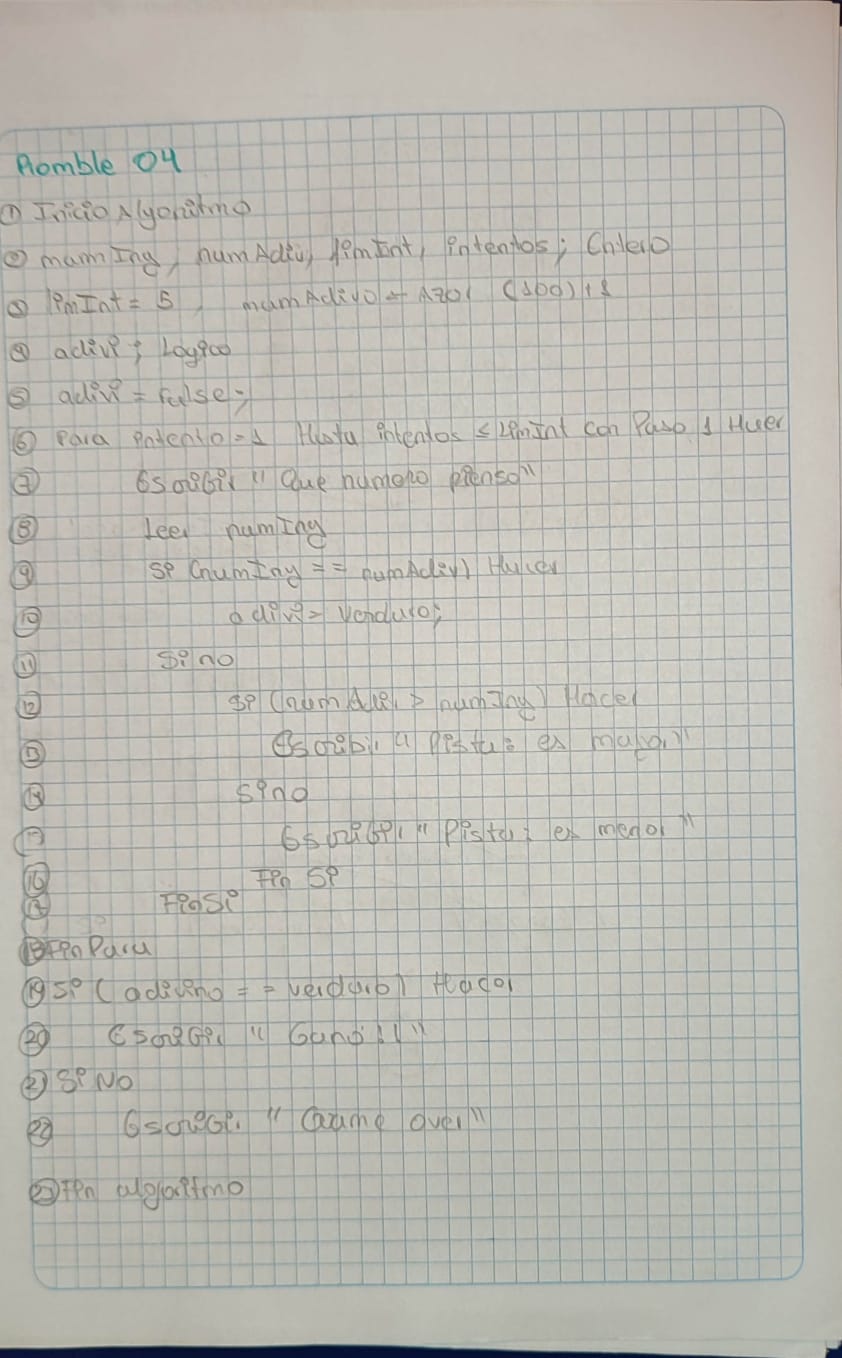 Problema 04
① Inicio Algoritmo
② numIng, numAdiv, limInt, intentos; Entero
③ limInt = 5, numAdivo = Azar (100)+1
④ adivi; Logico
⑤ adivi = False;
⑥ Para intento = 1 Hasta intentos ≤ LimInt con Paso 1 Hacer
⑦ Escribir "Que numero pienso"
⑧ Leer numIng
⑨ Si (numIng == numAdiv) Hacer
⑩ adivi = Verdaro;
⑪ Si no
⑫ Si (numAdi > numIng) Hacer
⑬ Escribir "Pista: es mayor"
⑭ Sino
⑮ Escribir "Pista: es menor"
⑯ Fin Si
⑰ FinSi
⑱ Fin Para
⑲ Si (adivino == verdaro) Hacer
⑳ Escribir "Gano!!"
㉑ Si No
㉒ Escribir "Game over"
㉓ Fin algoritmo